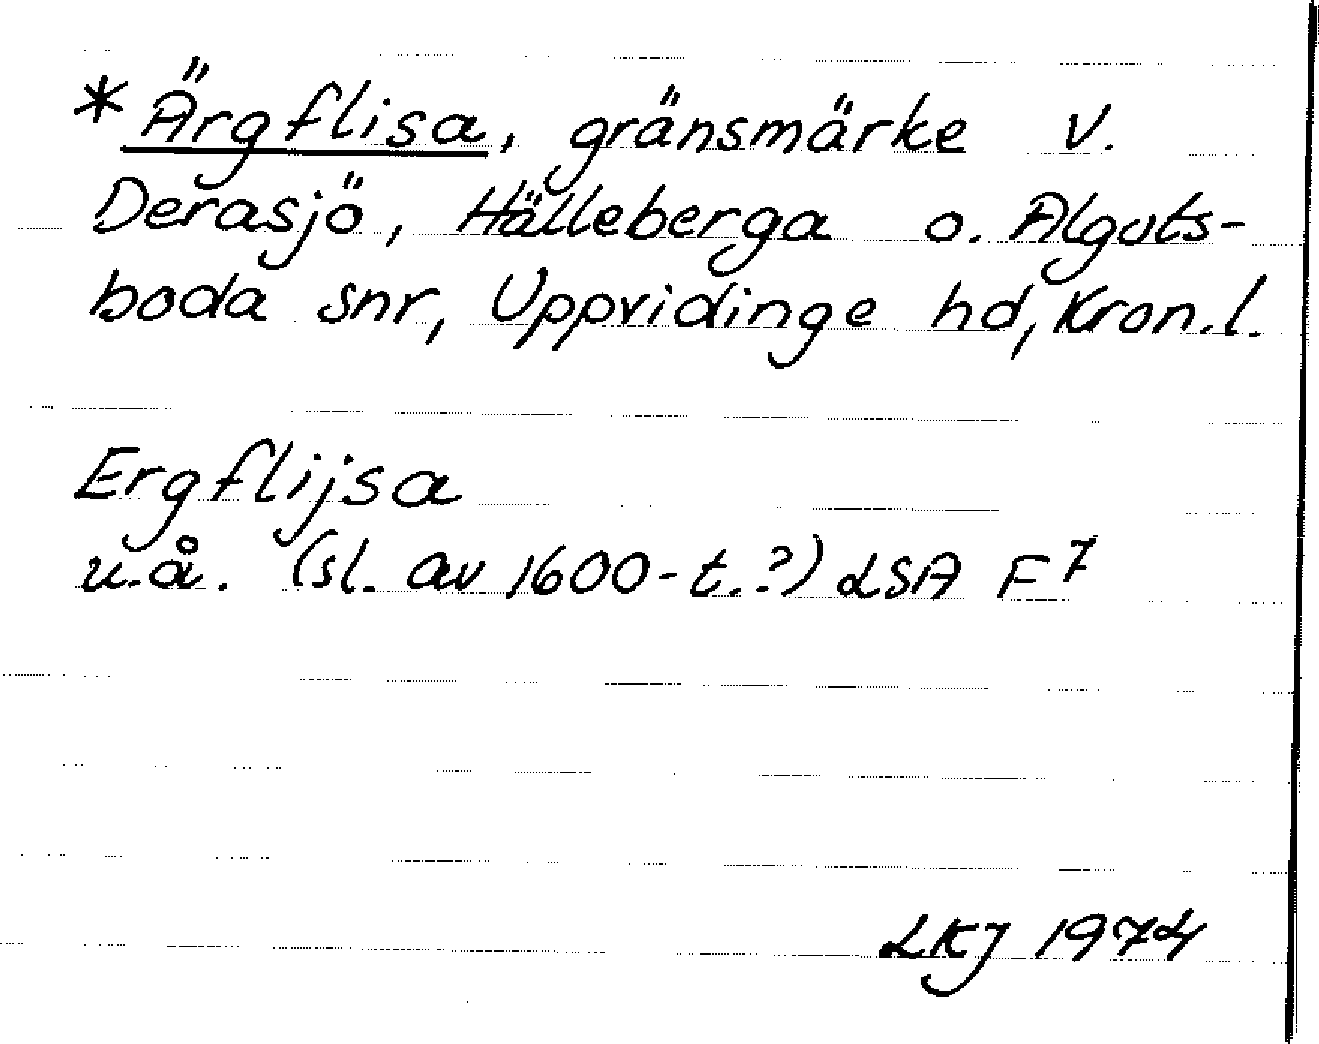 *Ärgflisa, gränsmärke v.
Derasjö, Hälleberga o. Algots-
boda snr, Uppvidinge hd, Kron.l.
Ergflijsa
u.å. (sl. av 1600-t.?) LSA F7
LKJ 1974